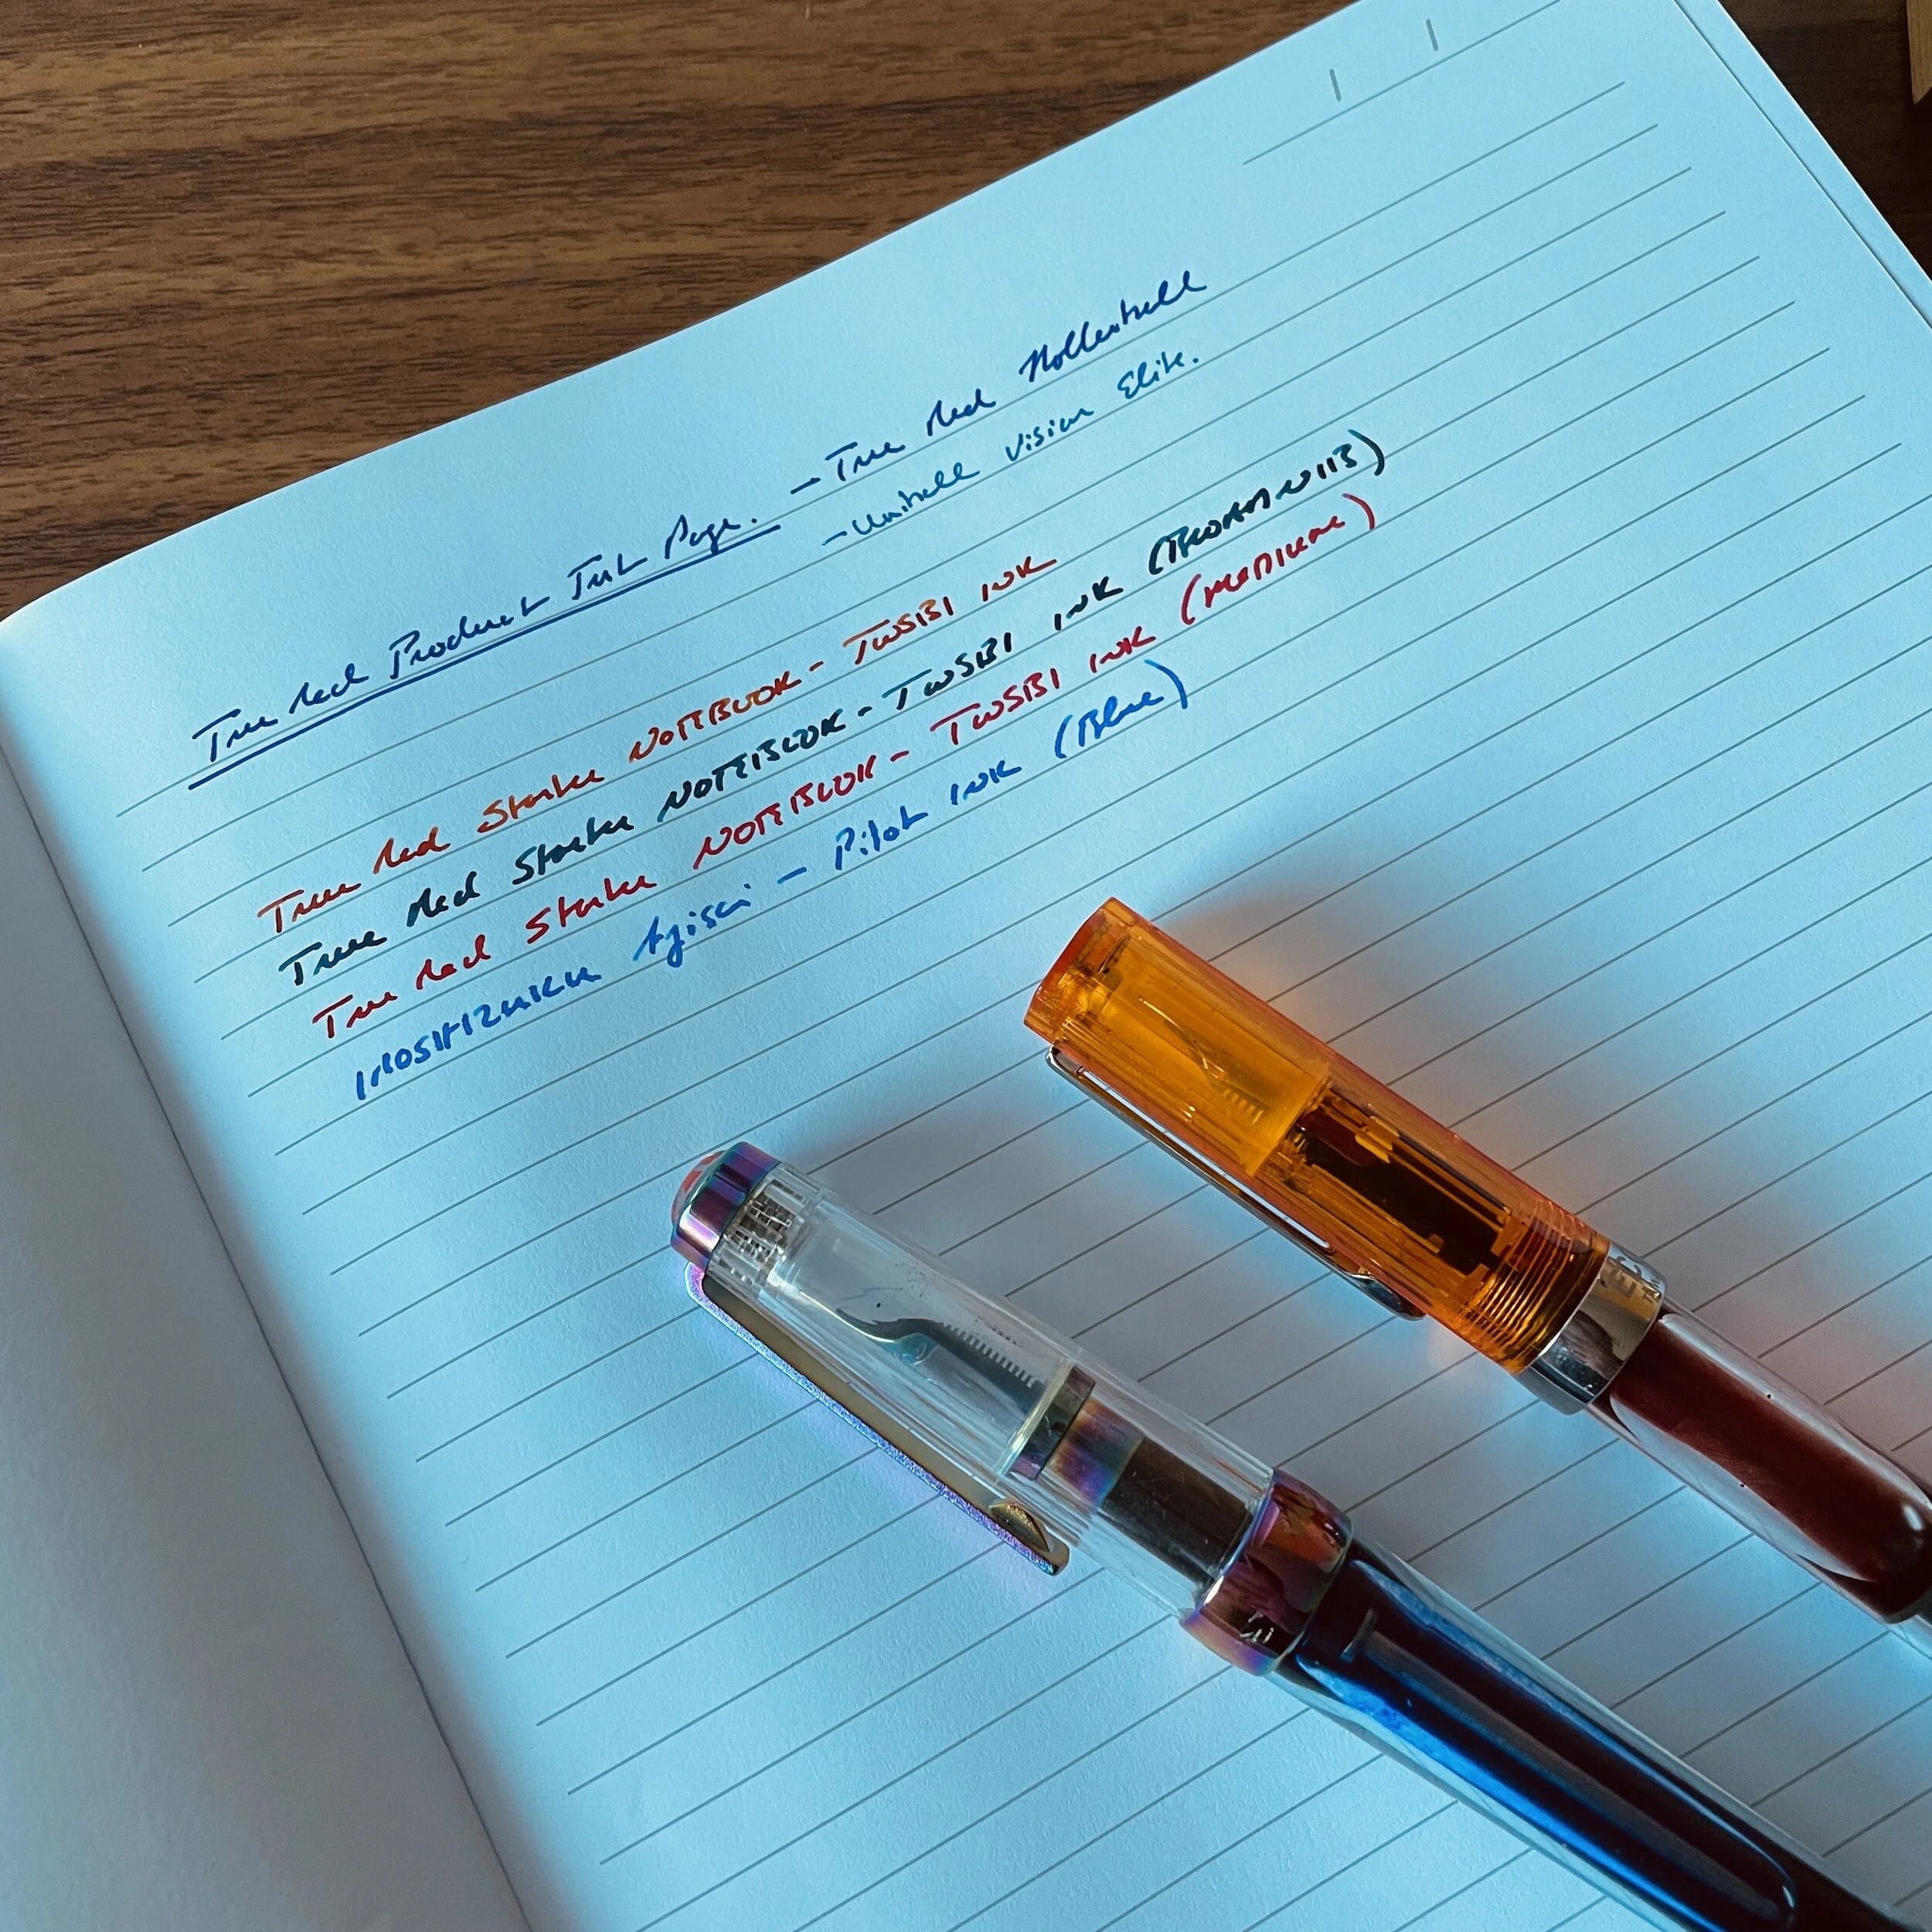 True Red Product Test Page. - True Red Rollerball
- Uniball Vision Elite.
True Red Starter NOTEBOOK - TWSBI INK
True Red Starter NOTEBOOK - TWSBI INK (BROADNIB)
True Red Starter NOTEBOOK - TWSBI INK (MEDIUM)
IROSHIZUKU Ajisai - Pilot INK (Blue)